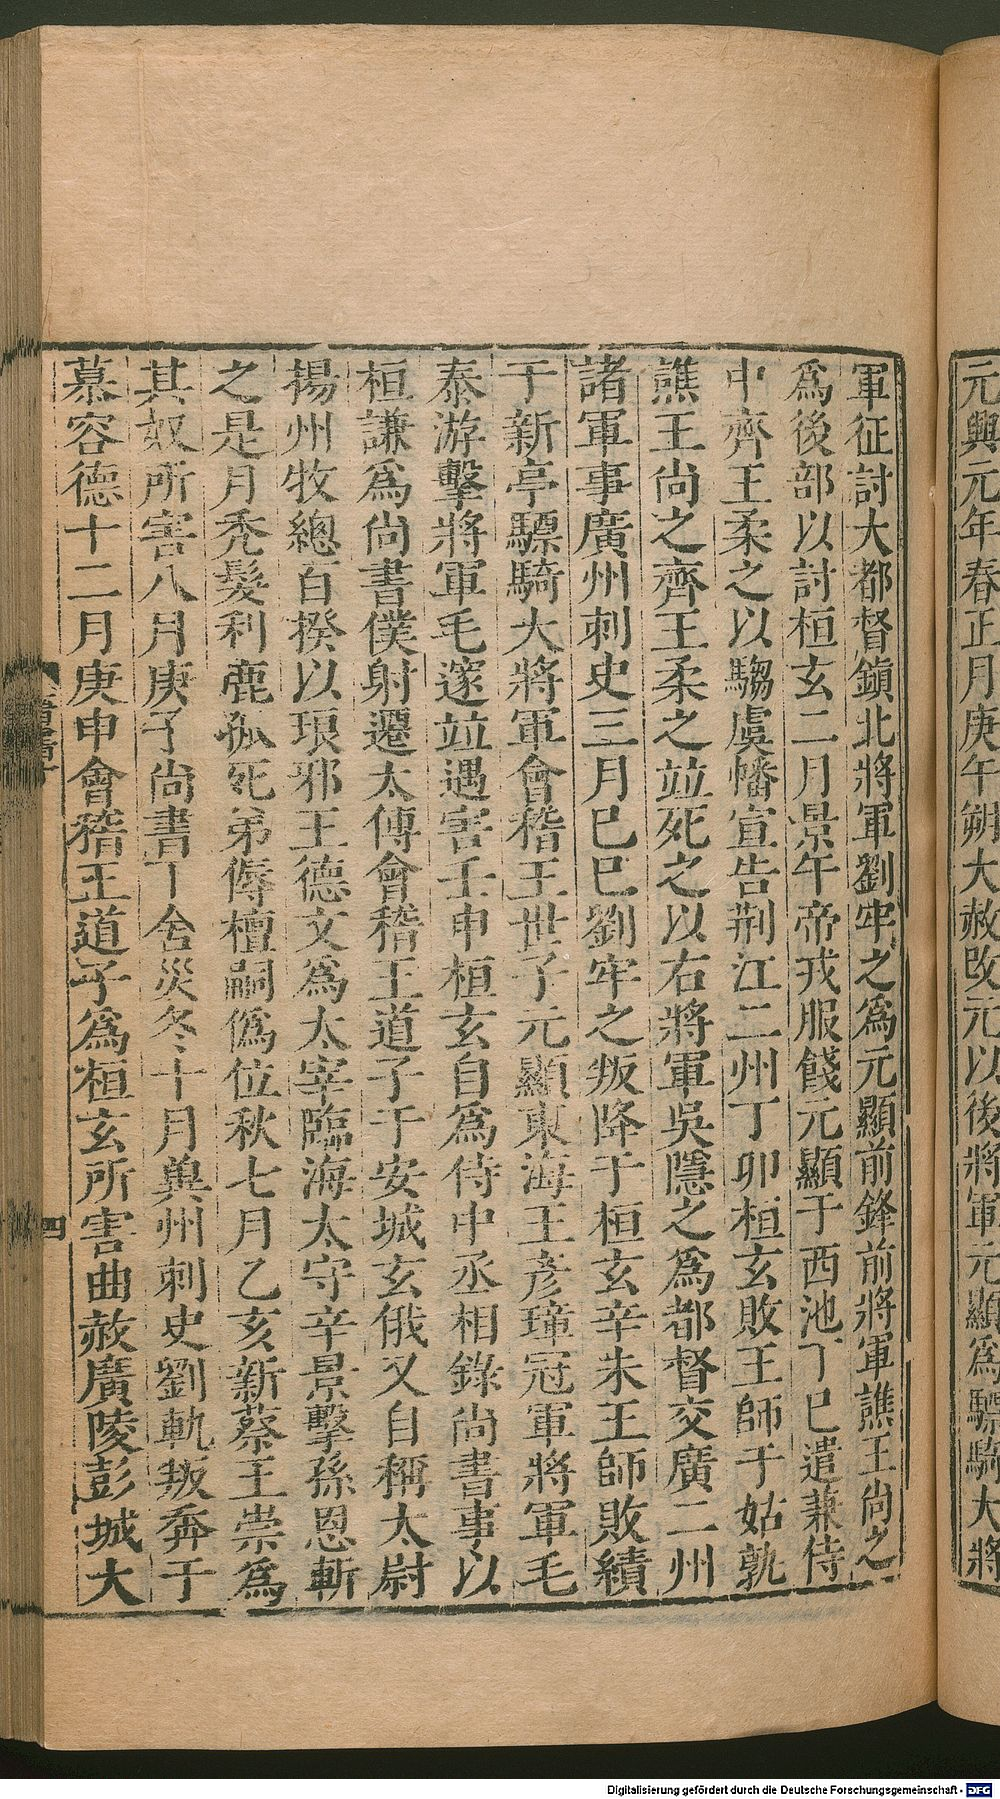 元興元年春正月庚午朔大赦改元以後將軍元顯為驃騎大將
軍征討大都督鎭北將軍劉牢之爲元顯前鋒前將軍譙王尚之
爲後部以討桓玄二月景午帝戎服餞元顯于西池丁巳遣兼侍
中齊王柔之以騶虞幡宣告荆江二州丁卯桓玄敗王師于姑孰
譙王尚之齊王柔之竝死之以右將軍吳隱之爲都督交廣二州
諸軍事廣州刺史三月己巳劉牢之叛降于桓玄辛未王師敗績
于新亭驃騎大將軍會稽王世子元顯東海王彦璋冠軍將軍毛
泰游擊將軍毛邃竝遇害壬申桓玄自爲侍中丞相錄尚書事以
桓謙爲尚書僕射遷太傅會稽王道子于安城玄俄又自稱太尉
揚州牧總百揆以琅邪王德文爲太宰臨海太守辛景擊孫恩斬
之是月禿髮利鹿孤死弟傉檀嗣僞位秋七月乙亥新蔡王崇爲
其奴所害八月庚子尚書下舍災冬十月兾州刺史劉軌叛奔于
慕容德十二月庚申會稽王道子爲桓玄所害曲赦廣陵彭城大
四
Digitalisierung gefördert durch die Deutsche Forschungsgemeinschaft - DFG